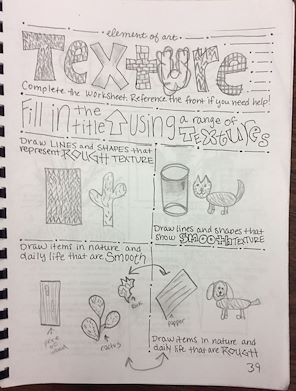 element of art
Texture
Complete the Worksheet. Reference the front if you need help!
Fill in the title using a range of TEXTURES
Draw LINES and SHAPES that represent ROUGH TEXTURE
Draw lines and shapes that show SMOOTH TEXTURE
Draw items in nature and daily life that are Smooth
rock
paper
piece of wood
cactus
Draw items in nature and daily life that are ROUGH
39